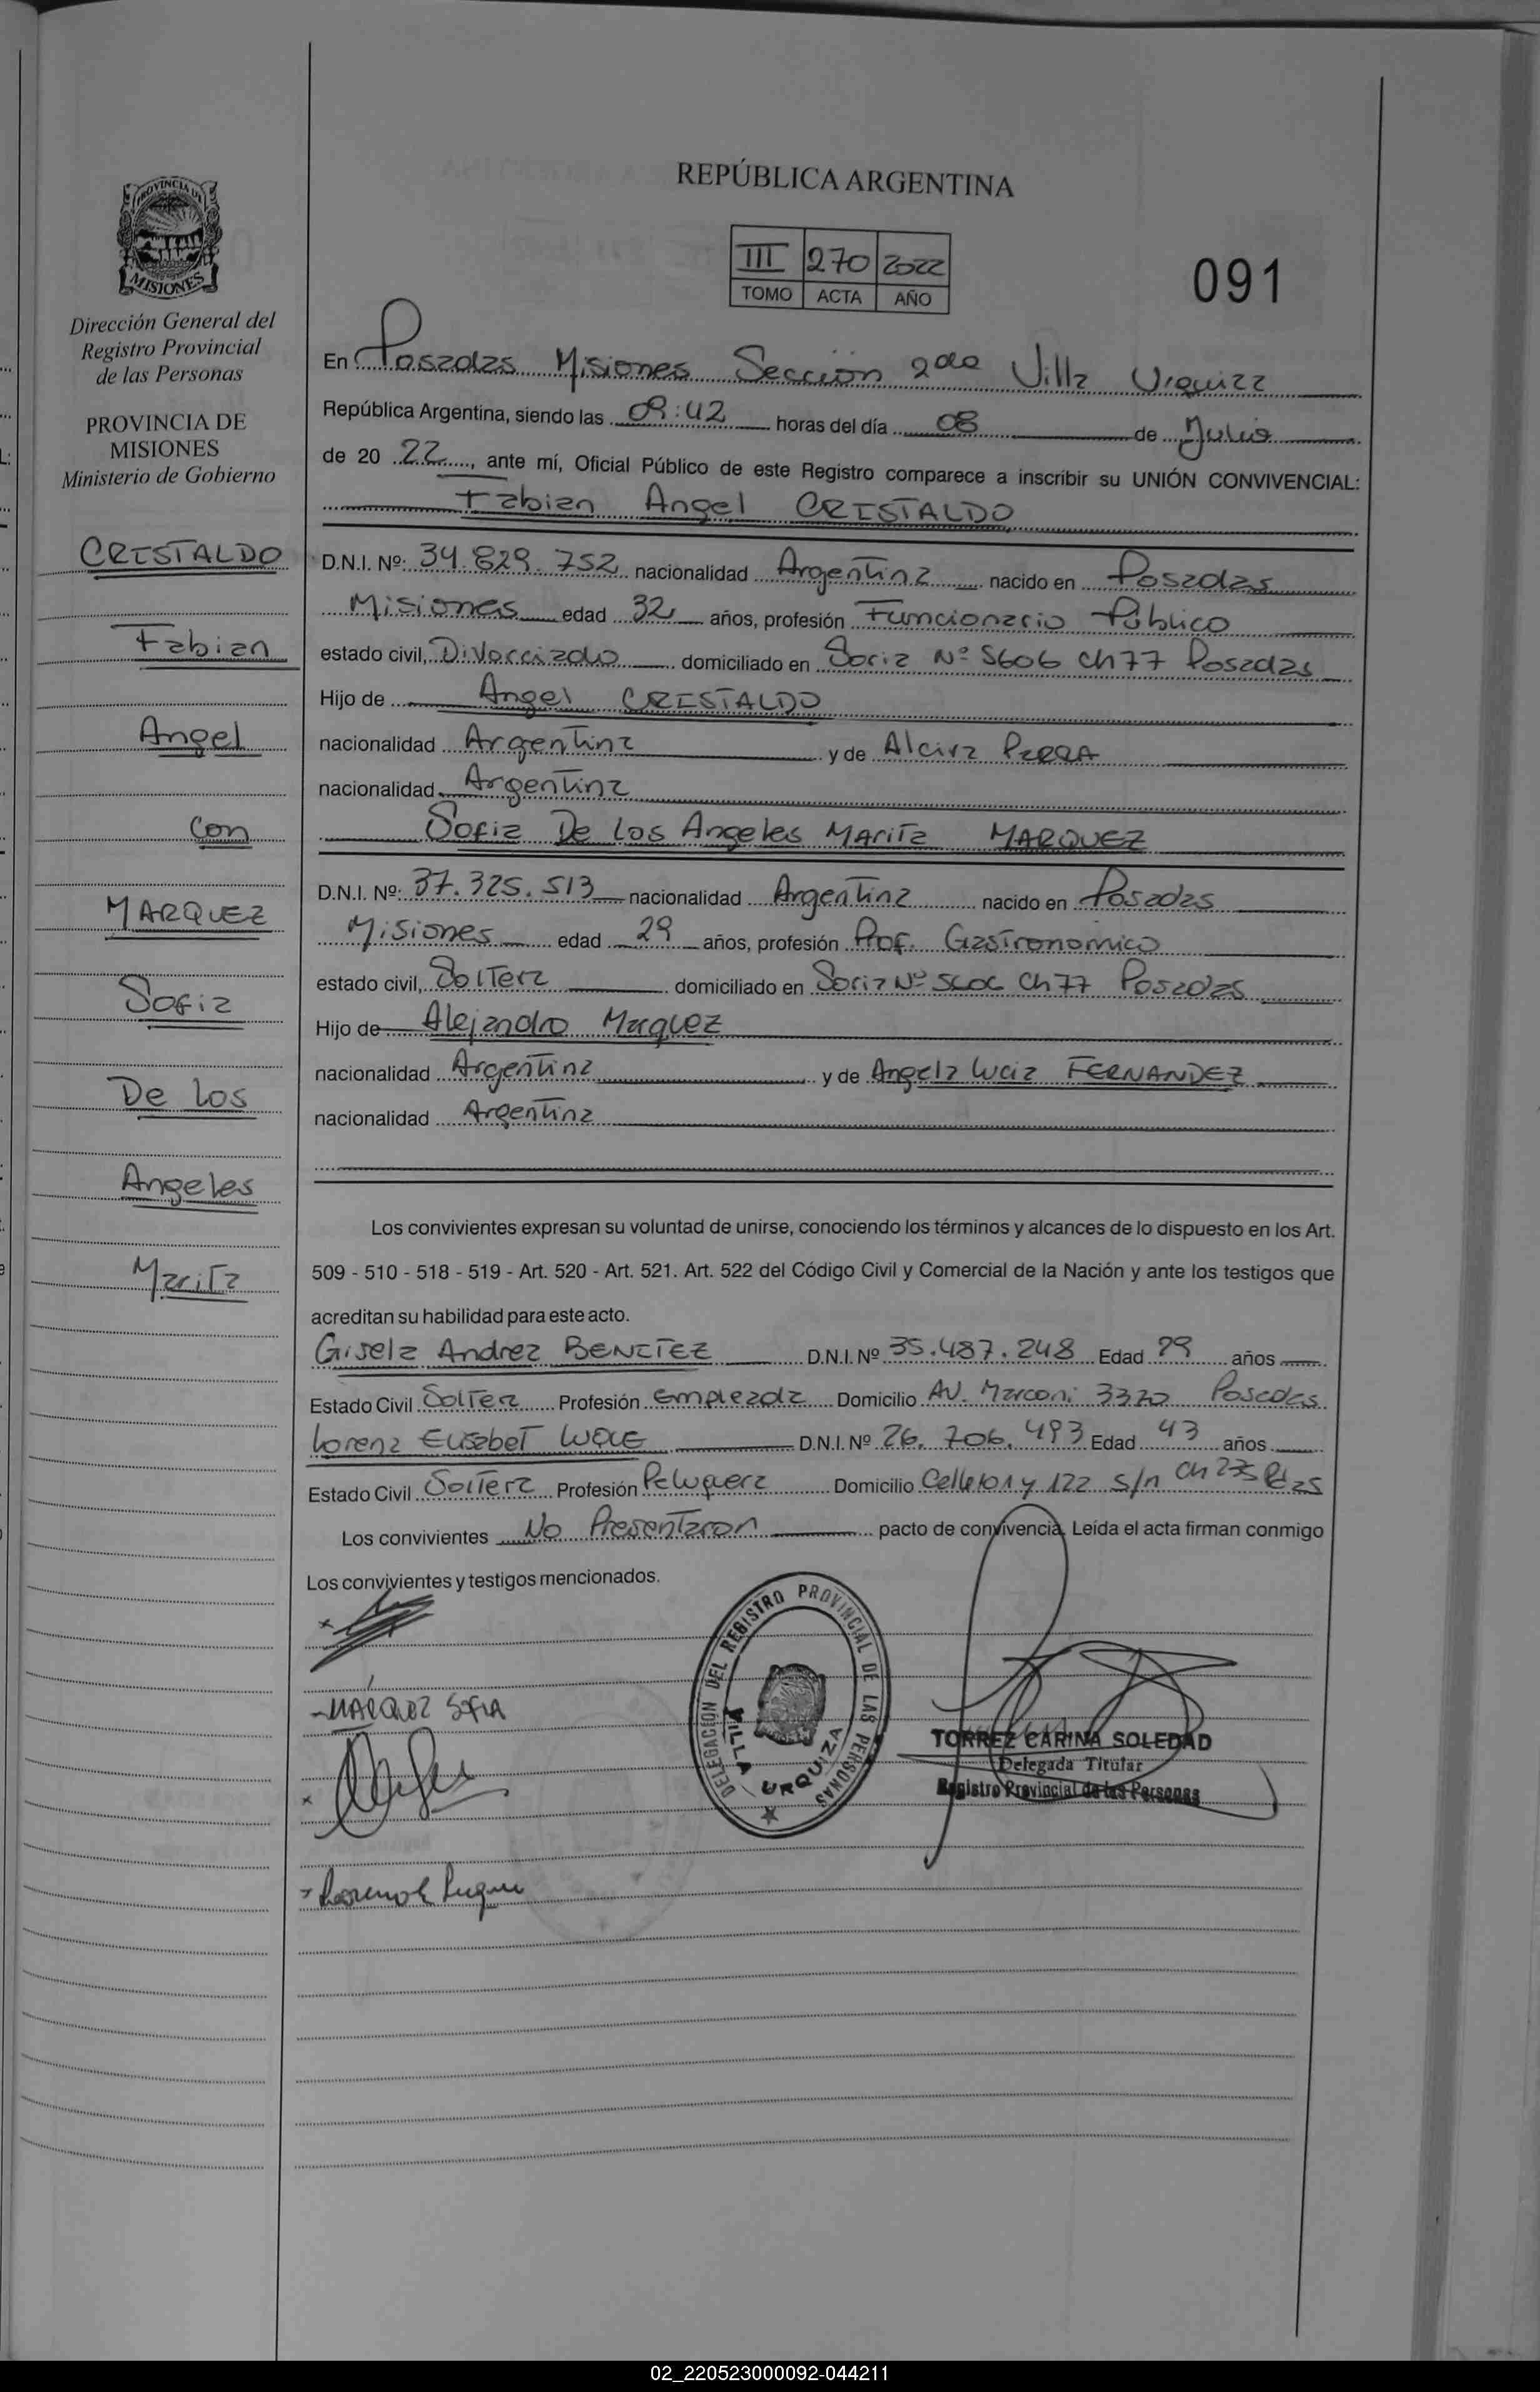 REPÚBLICA ARGENTINA
III 270 2022
TOMO ACTA AÑO
091
PROVINCIA DE
MISIONES
Dirección General del
Registro Provincial
de las Personas
PROVINCIA DE
MISIONES
Ministerio de Gobierno
CRISTALDO
Fabian
Angel
Con
MARQUEZ
Sofia
De Los
Angeles
Marita
En Posadas Misiones Sección 2da Villa Urquiza
República Argentina, siendo las 09:42 horas del día 08 de Julio
de 20 22, ante mí, Oficial Público de este Registro comparece a inscribir su UNIÓN CONVIVENCIAL:
Fabian Angel CRISTALDO
D.N.I. Nº: 34.829.752 nacionalidad Argentina nacido en Posadas
Misiones edad 32 años, profesión Funcionario Público
estado civil, Divorciado domiciliado en Soria Nº 5606 Ch 77 Posadas
Hijo de Angel CRISTALDO
nacionalidad Argentina y de Alcira
nacionalidad Argentina
Sofia De Los Angeles Marita MARQUEZ
D.N.I. Nº: 37.325.513 nacionalidad Argentina nacido en Posadas
Misiones edad 29 años, profesión Prof. Gastronomico
estado civil, Soltera domiciliado en Soria Nº 5606 Ch 77 Posadas
Hijo de Alejandro Marquez
nacionalidad Argentina y de Angela Lucia FERNANDEZ
nacionalidad Argentina
Los convivientes expresan su voluntad de unirse, conociendo los términos y alcances de lo dispuesto en los Art.
509 - 510 - 518 - 519 - Art. 520 - Art. 521. Art. 522 del Código Civil y Comercial de la Nación y ante los testigos que
acreditan su habilidad para este acto.
Gisela Andrea BENITEZ D.N.I. Nº 35.487.248 Edad años
Estado Civil Soltera Profesión Empleada Domicilio AV. Marconi 3370 Posadas
Lorena Elisabet D.N.I. Nº 26.706.493 Edad 43 años
Estado Civil Soltera Profesión Peluquera Domicilio Calle 101 y 122 s/n Ch
Los convivientes No Presentaron pacto de convivencia, Leída el acta firman conmigo
Los convivientes y testigos mencionados.
MÁRQUEZ SOFIA
DELEGACION DEL REGISTRO PROVINCIAL DE LAS PERSONAS
VILLA URQUIZA
TORREZ CARINA SOLEDAD
Delegada Titular
Registro Provincial de las Personas
02_220523000092-044211